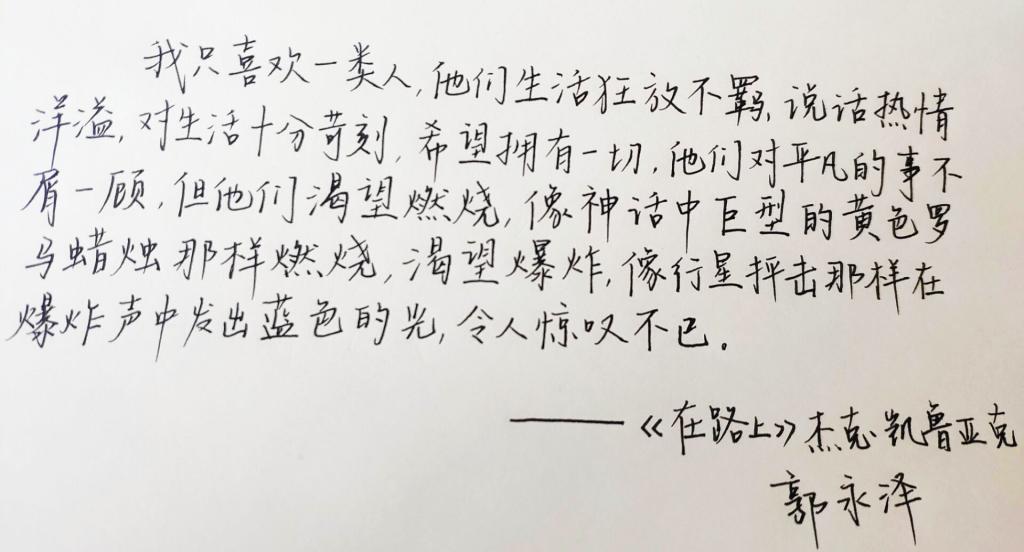 我只喜欢一类人,他们生活狂放不羁,说话热情
洋溢,对生活十分苛刻,希望拥有一切,他们对平凡的事不
屑一顾,但他们渴望燃烧,像神话中巨型的黄色罗
马蜡烛那样燃烧,渴望爆炸,像行星抨击那样在
爆炸声中发出蓝色的光,令人惊叹不已。
——《在路上》杰克·凯鲁亚克
郭永泽